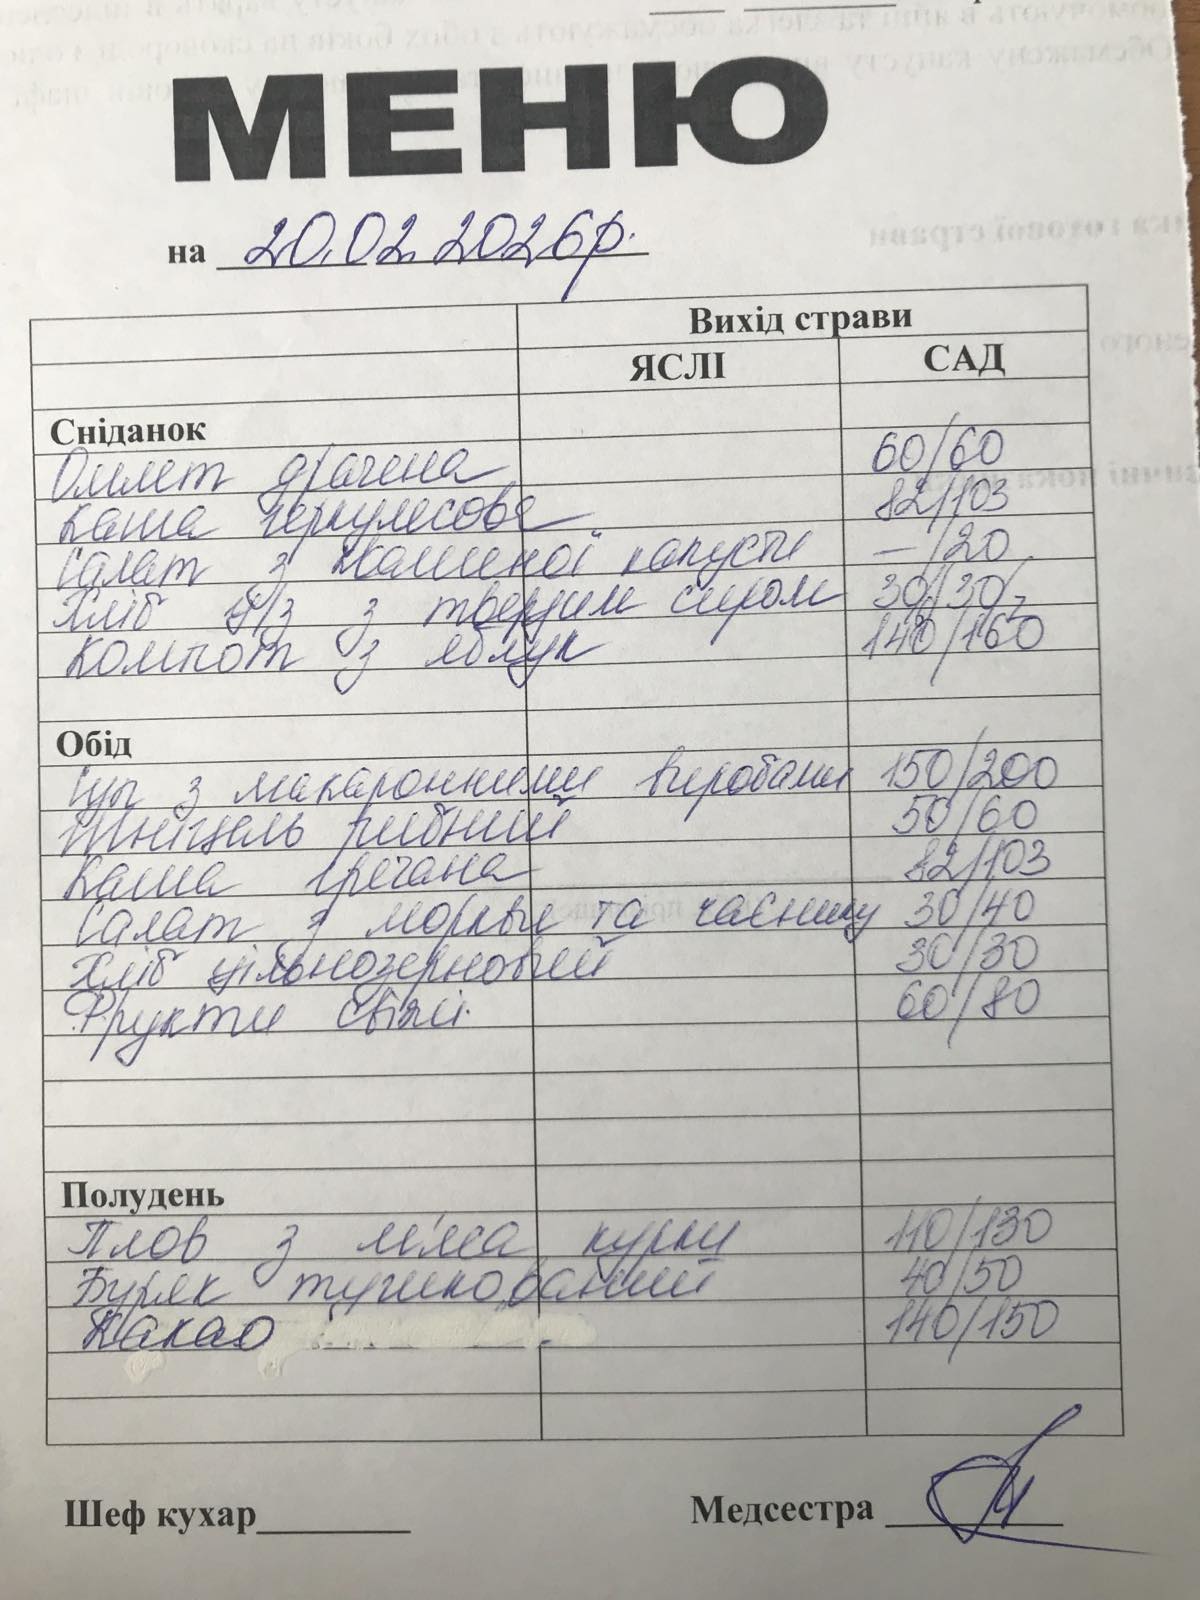 МЕНЮ
на 20.02.2026р.
Вихід страви
ЯСЛІ САД
Сніданок
Омлет драчена 60/60
Каша геркулесова 82/103
Салат з квашеної капусти —/20
Хліб ц/з з твердим сиром 30/30/7
Компот з яблук 140/160
Обід
Суп з макаронними виробами 150/200
Шніцель рибний 50/60
Каша гречана 82/103
Салат з моркви та часнику 30/40
Хліб цільнозерновий 30/30
Фрукти свіжі 60/80
Полудень
Плов з м'яса курки 110/130
Буряк тушкований 40/50
Какао 140/150
Шеф кухар Медсестра